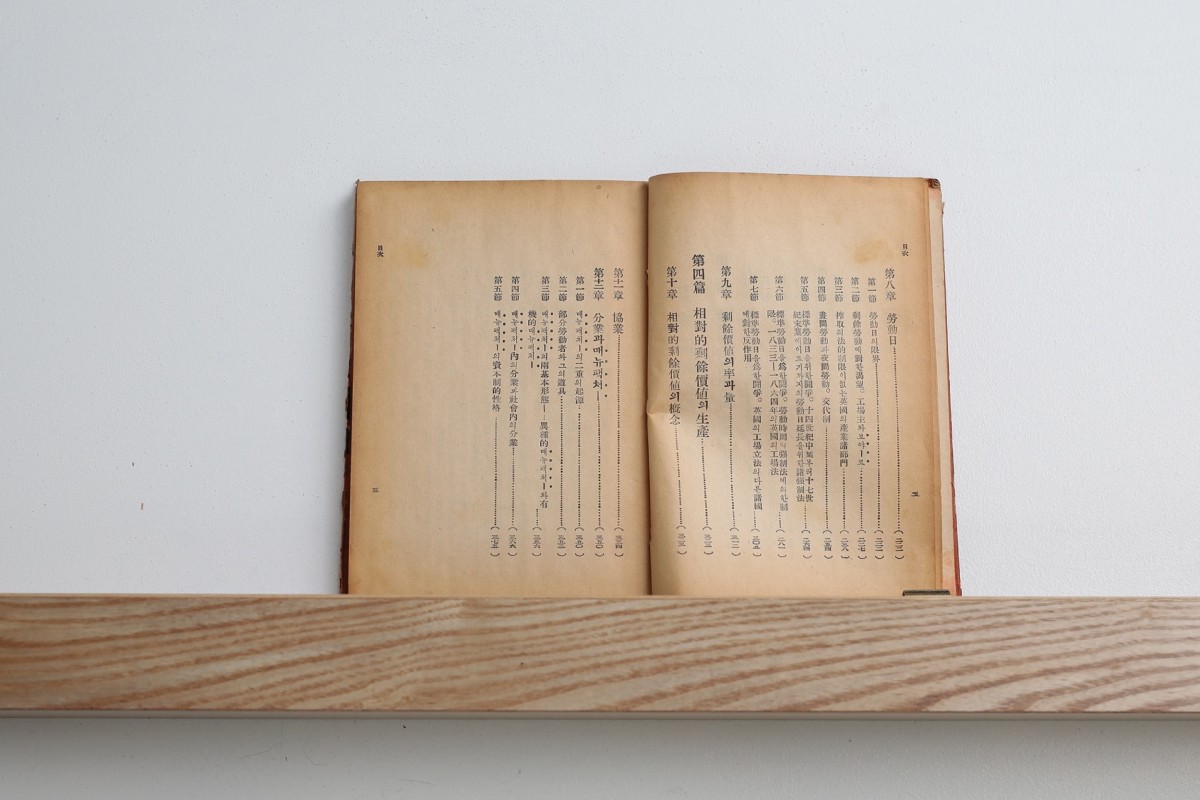 目次
第八章 勞動日
第一節 勞動日의限界
第二節 剩餘勞動에對한渴望。工場主와보야ー르
第三節 搾取의法的制限이없는英國의產業諸部門
第四節 晝間勞動과夜間勞動。交代制
第五節 標準勞動日을위한鬪爭。十四世紀中葉부터十七世
紀末葉에이르기까지의勞動日延長을위한諸强制法
第六節 標準勞動日을爲한鬪爭。勞動時間의强制法에의한制
限。一八三三ー一八六四年의英國의工場法
第七節 標準勞動日을爲한鬪爭。英國의工場立法의다른諸國
에對한反作用
第九章 剩餘價値의率과量
第四篇 相對的剩餘價値의生產
第十章 相對的剩餘價値의槪念
第十一章 協業
第十二章 分業과매뉴팩처ー
第一節 매뉴팩처ー의二重의起源
第二節 部分勞動者와그의道具
第三節 매뉴팩처ー의兩基本形態ー異種的매뉴팩처ー와有
機的매뉴팩처ー
第四節 매뉴팩처ー內의分業과社會內의分業
第五節 매뉴팩처ー의資本制的性格
目次